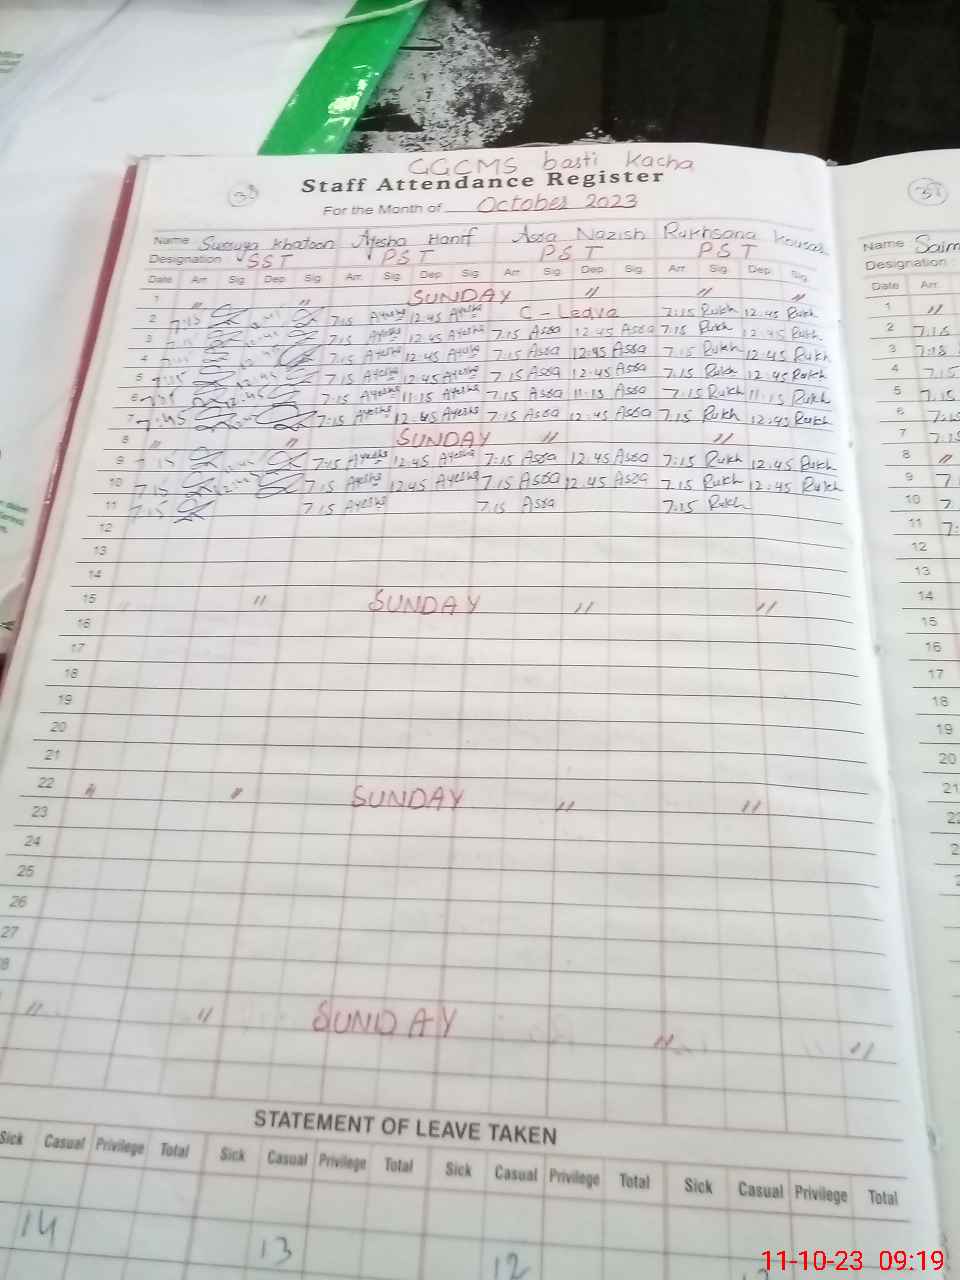 GGCMS basti Kacha
39
Staff Attendance Register
For the Month of October 2023
Name Surruya Khatoon Ayesha Hanif Assa Nazish Rukhsana Kousar
Designation SST PST PST PST
Date Arr Sig Dep Sig Arr Sig Dep Sig Arr Sig Dep Sig Arr Sig Dep Sig
1 " " SUNDAY " " "
2 7:15 7:15 Ayesha 12:45 Ayesha C-Leave 7:15 Rukh 12:45 Rukh
3 7:15 7:15 Ayesha 12:45 Ayesha 7:15 Assa 12:45 Assa 7:15 Rukh 12:45 Rukh
4 7:15 12:45 7:15 Ayesha 12:45 Ayesha 7:15 Assa 12:45 Assa 7:15 Rukh 12:45 Rukh
5 7:15 12:45 7:15 Ayesha 12:45 Ayesha 7:15 Assa 12:45 Assa 7:15 Rukh 12:45 Rukh
6 7:15 Ayesha 11:15 Ayesha 7:15 Assa 11:15 Assa 7:15 Rukh 11:15 Rukh
7 7:15 Ayesha 12:45 Ayesha 7:15 Assa 12:45 Assa 7:15 Rukh 12:45 Rukh
8 " " SUNDAY " "
9 7:15 12:45 7:15 Ayesha 12:45 Ayesha 7:15 Assa 12:45 Assa 7:15 Rukh 12:45 Rukh
10 7:15 12:45 7:15 Ayesha 12:45 Ayesha 7:15 Assa 12:45 Assa 7:15 Rukh 12:45 Rukh
11 7:15 7:15 Ayesha 7:15 Assa 7:15 Rukh
12
13
14
15 " " SUNDAY " "
16
17
18
19
20
21
22 " " SUNDAY " "
23
24
25
26
27
8
" " SUNDAY " "
STATEMENT OF LEAVE TAKEN
Sick Casual Privilege Total Sick Casual Privilege Total Sick Casual Privilege Total Sick Casual Privilege Total
14 13 12
Name Saim
Designation
Date Arr.
1 "
2 7:15
3 7:15
4 7:15
5 7:15
6 7:15
7 7:15
8 "
9 7
10 7
11 7:
12
13
14
15
16
17
18
19
20
21
22
2
2
11-10-23 09:19